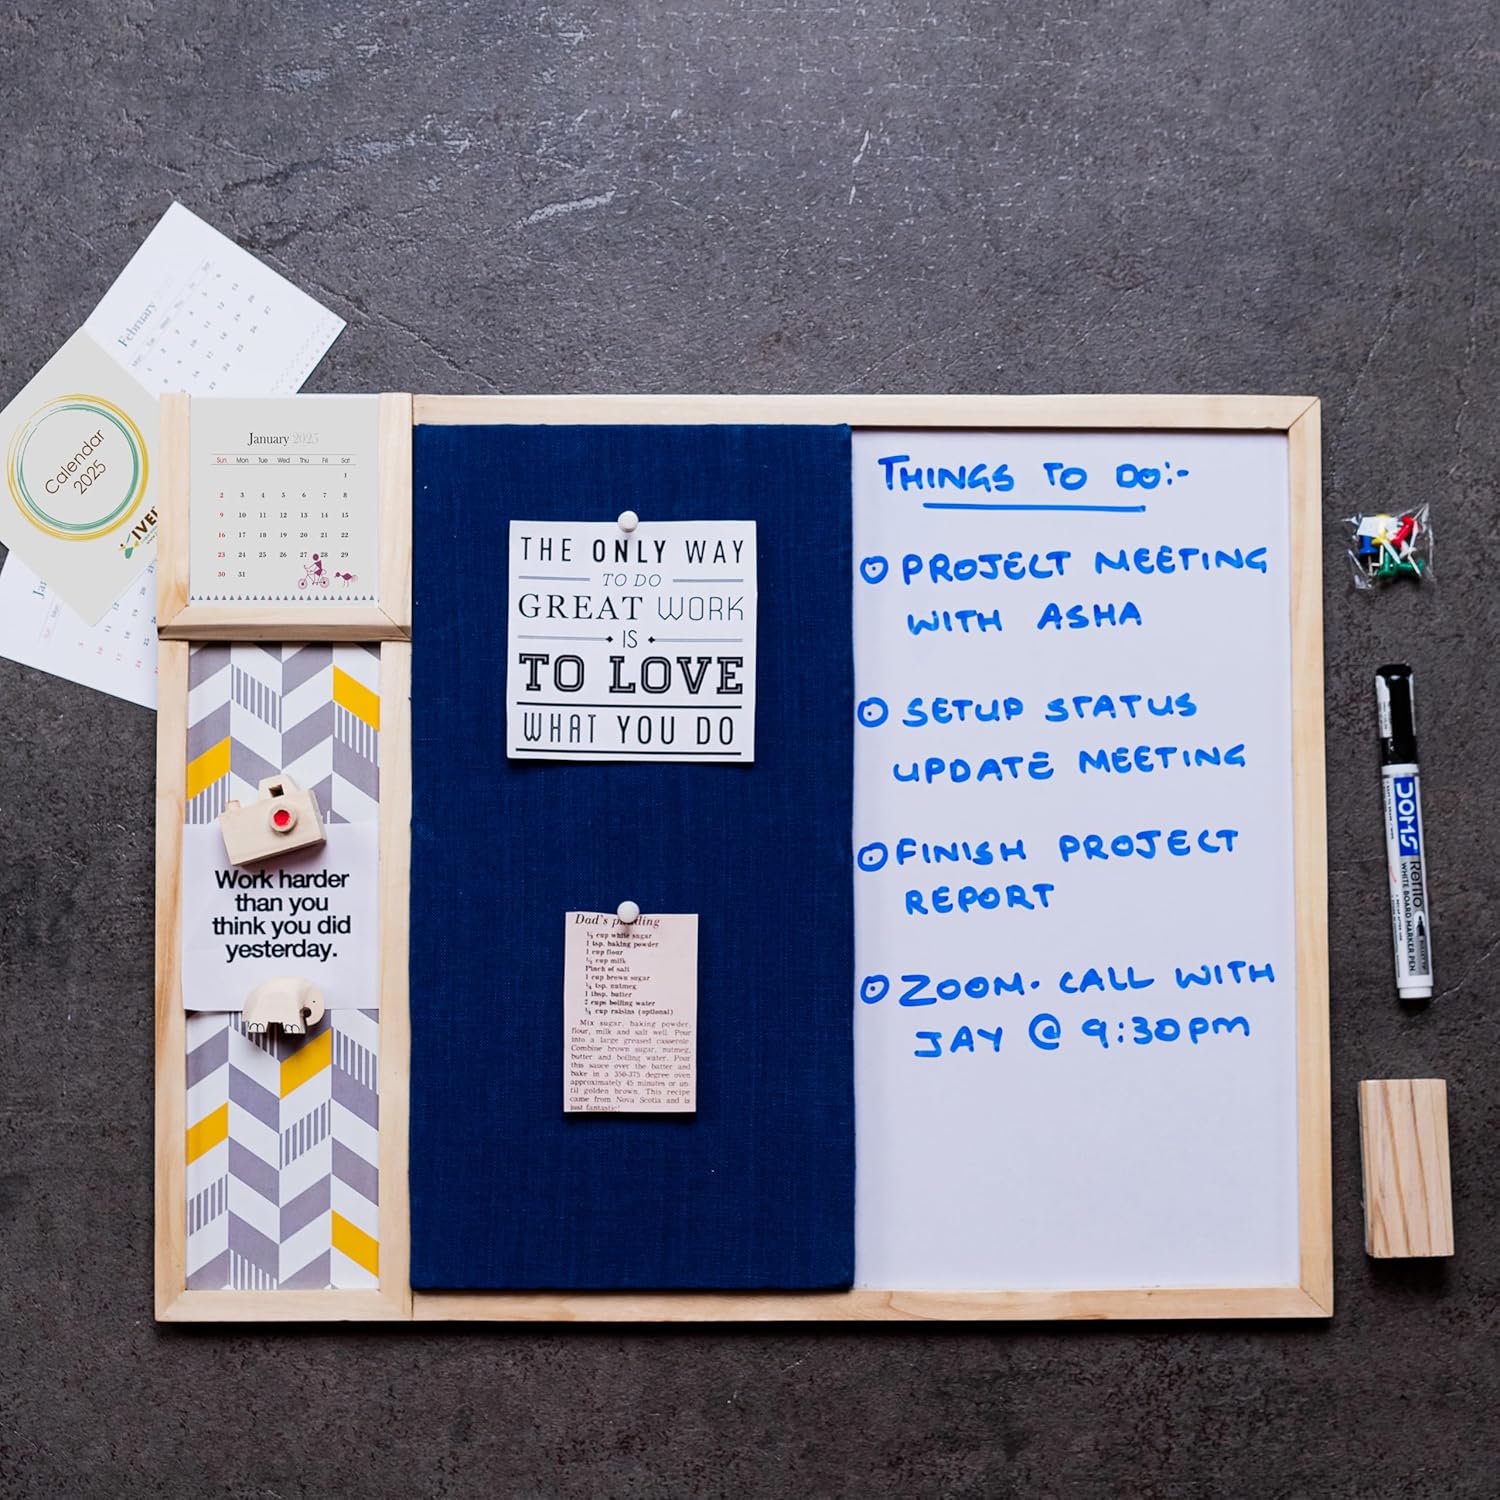 February
Calendar
2025
January 2025
Sun Mon Tue Wed Thu Fri Sat
1
2 3 4 5 6 7 8
9 10 11 12 13 14 15
16 17 18 19 20 21 22
23 24 25 26 27 28 29
30 31
Work harder
than you
think you did
yesterday.
THE ONLY WAY
TO DO
GREAT WORK
IS
TO LOVE
WHAT YOU DO
Dad's pudding
1 tsp. baking powder
1 cup flour
Pinch of salt
1 cup brown sugar
1 tbsp. butter
2 cups boiling water
Mix sugar, baking powder,
flour, milk and salt well. Pour
into a large greased casserole.
Combine brown sugar, nutmeg,
butter and boiling water. Pour
this sauce over the batter and
bake in a 350-375 degree oven
approximately 45 minutes or un-
til golden brown. This recipe
came from Nova Scotia and is
just fantastic!
THINGS TO DO:-
PROJECT MEETING
WITH ASHA
SETUP STATUS
UPDATE MEETING
FINISH PROJECT
REPORT
ZOOM. CALL WITH
JAY @ 9:30PM
DOMS
Refilo
WHITE BOARD MARKER PEN